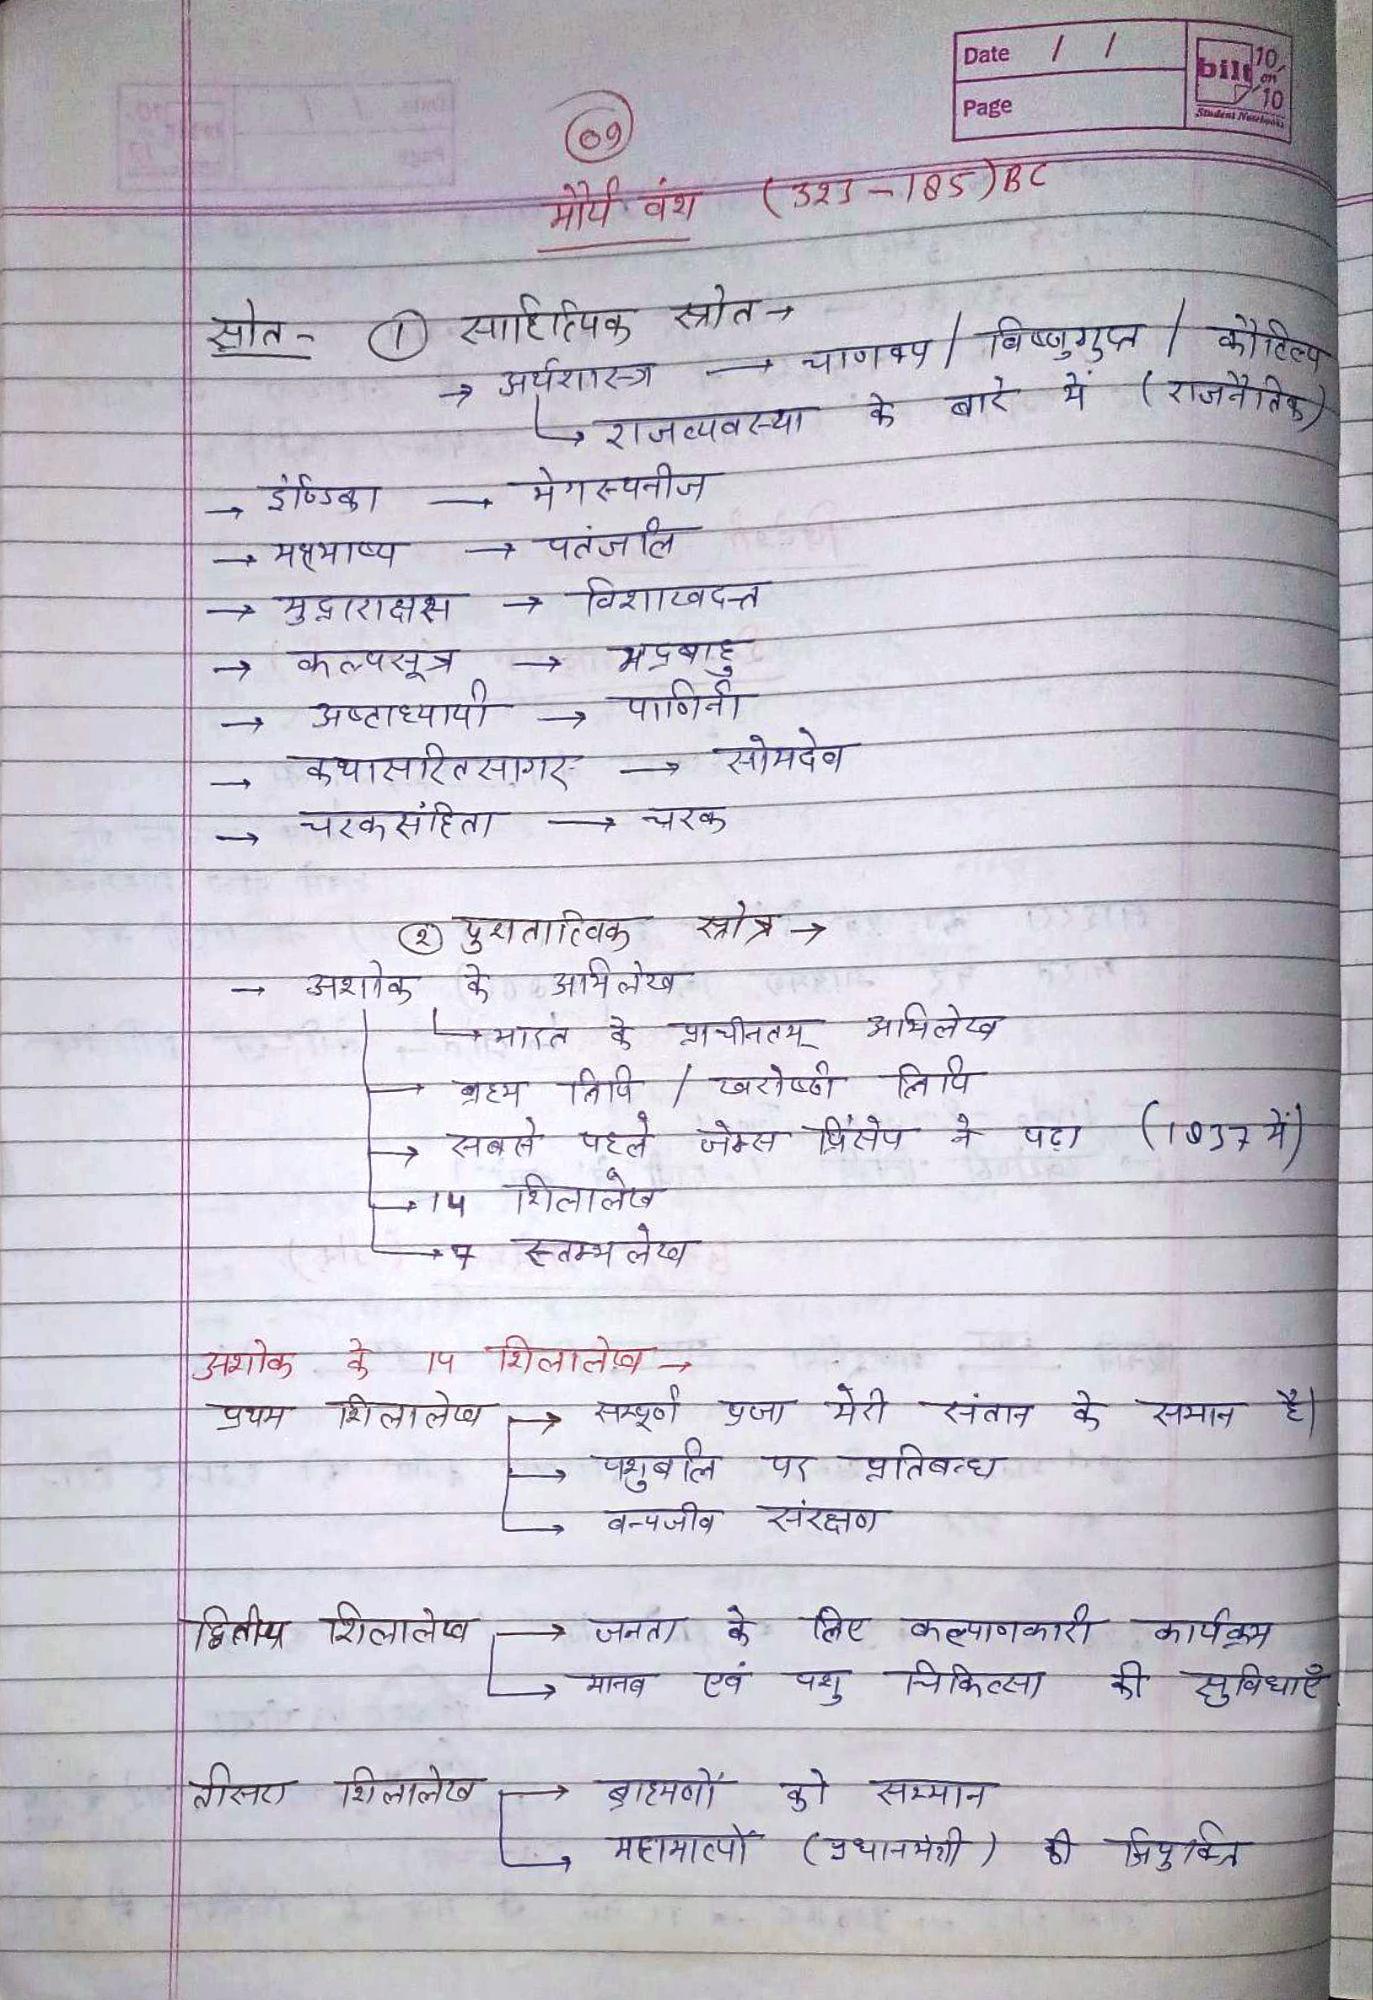 Date / /
Page
bilt 10 on 10
Student Notebooks
09
मौर्य वंश (323-185) BC
स्रोत - ① साहित्यिक स्रोत →
→ अर्थशास्त्र → चाणक्य / विष्णुगुप्त / कौटिल्य
↳ राजव्यवस्था के बारे में (राजनैतिक)
→ इण्डिका → मेगस्थनीज
→ महाभाष्य → पतंजलि
→ मुद्राराक्षस → विशाखदत्त
→ कल्पसूत्र → भद्रबाहु
→ अष्टाध्यायी → पाणिनी
→ कथासरितसागर → सोमदेव
→ चरकसंहिता → चरक
② पुरातात्विक स्त्रोत्र →
→ अशोक के अभिलेख
↳ भारत के प्राचीनतम् अभिलेख
→ ब्रह्म लिपि / खरोष्ठी लिपि
→ सबसे पहले जेम्स प्रिंसेप ने पढ़ा (1837 में)
→ 14 शिलालेख
→ 7 स्तम्भ लेख
अशोक के 14 शिलालेख →
प्रथम शिलालेख → सम्पूर्ण प्रजा मेरी संतान के समान है।
→ पशुबलि पर प्रतिबन्ध
→ वन्यजीव संरक्षण
द्वितीय शिलालेख → जनता के लिए कल्याणकारी कार्यक्रम
→ मानव एवं पशु चिकित्सा की सुविधाएँ
तीसरा शिलालेख → ब्राह्मणों को सम्मान
→ महामात्यों (प्रधानमंत्री) की नियुक्ति